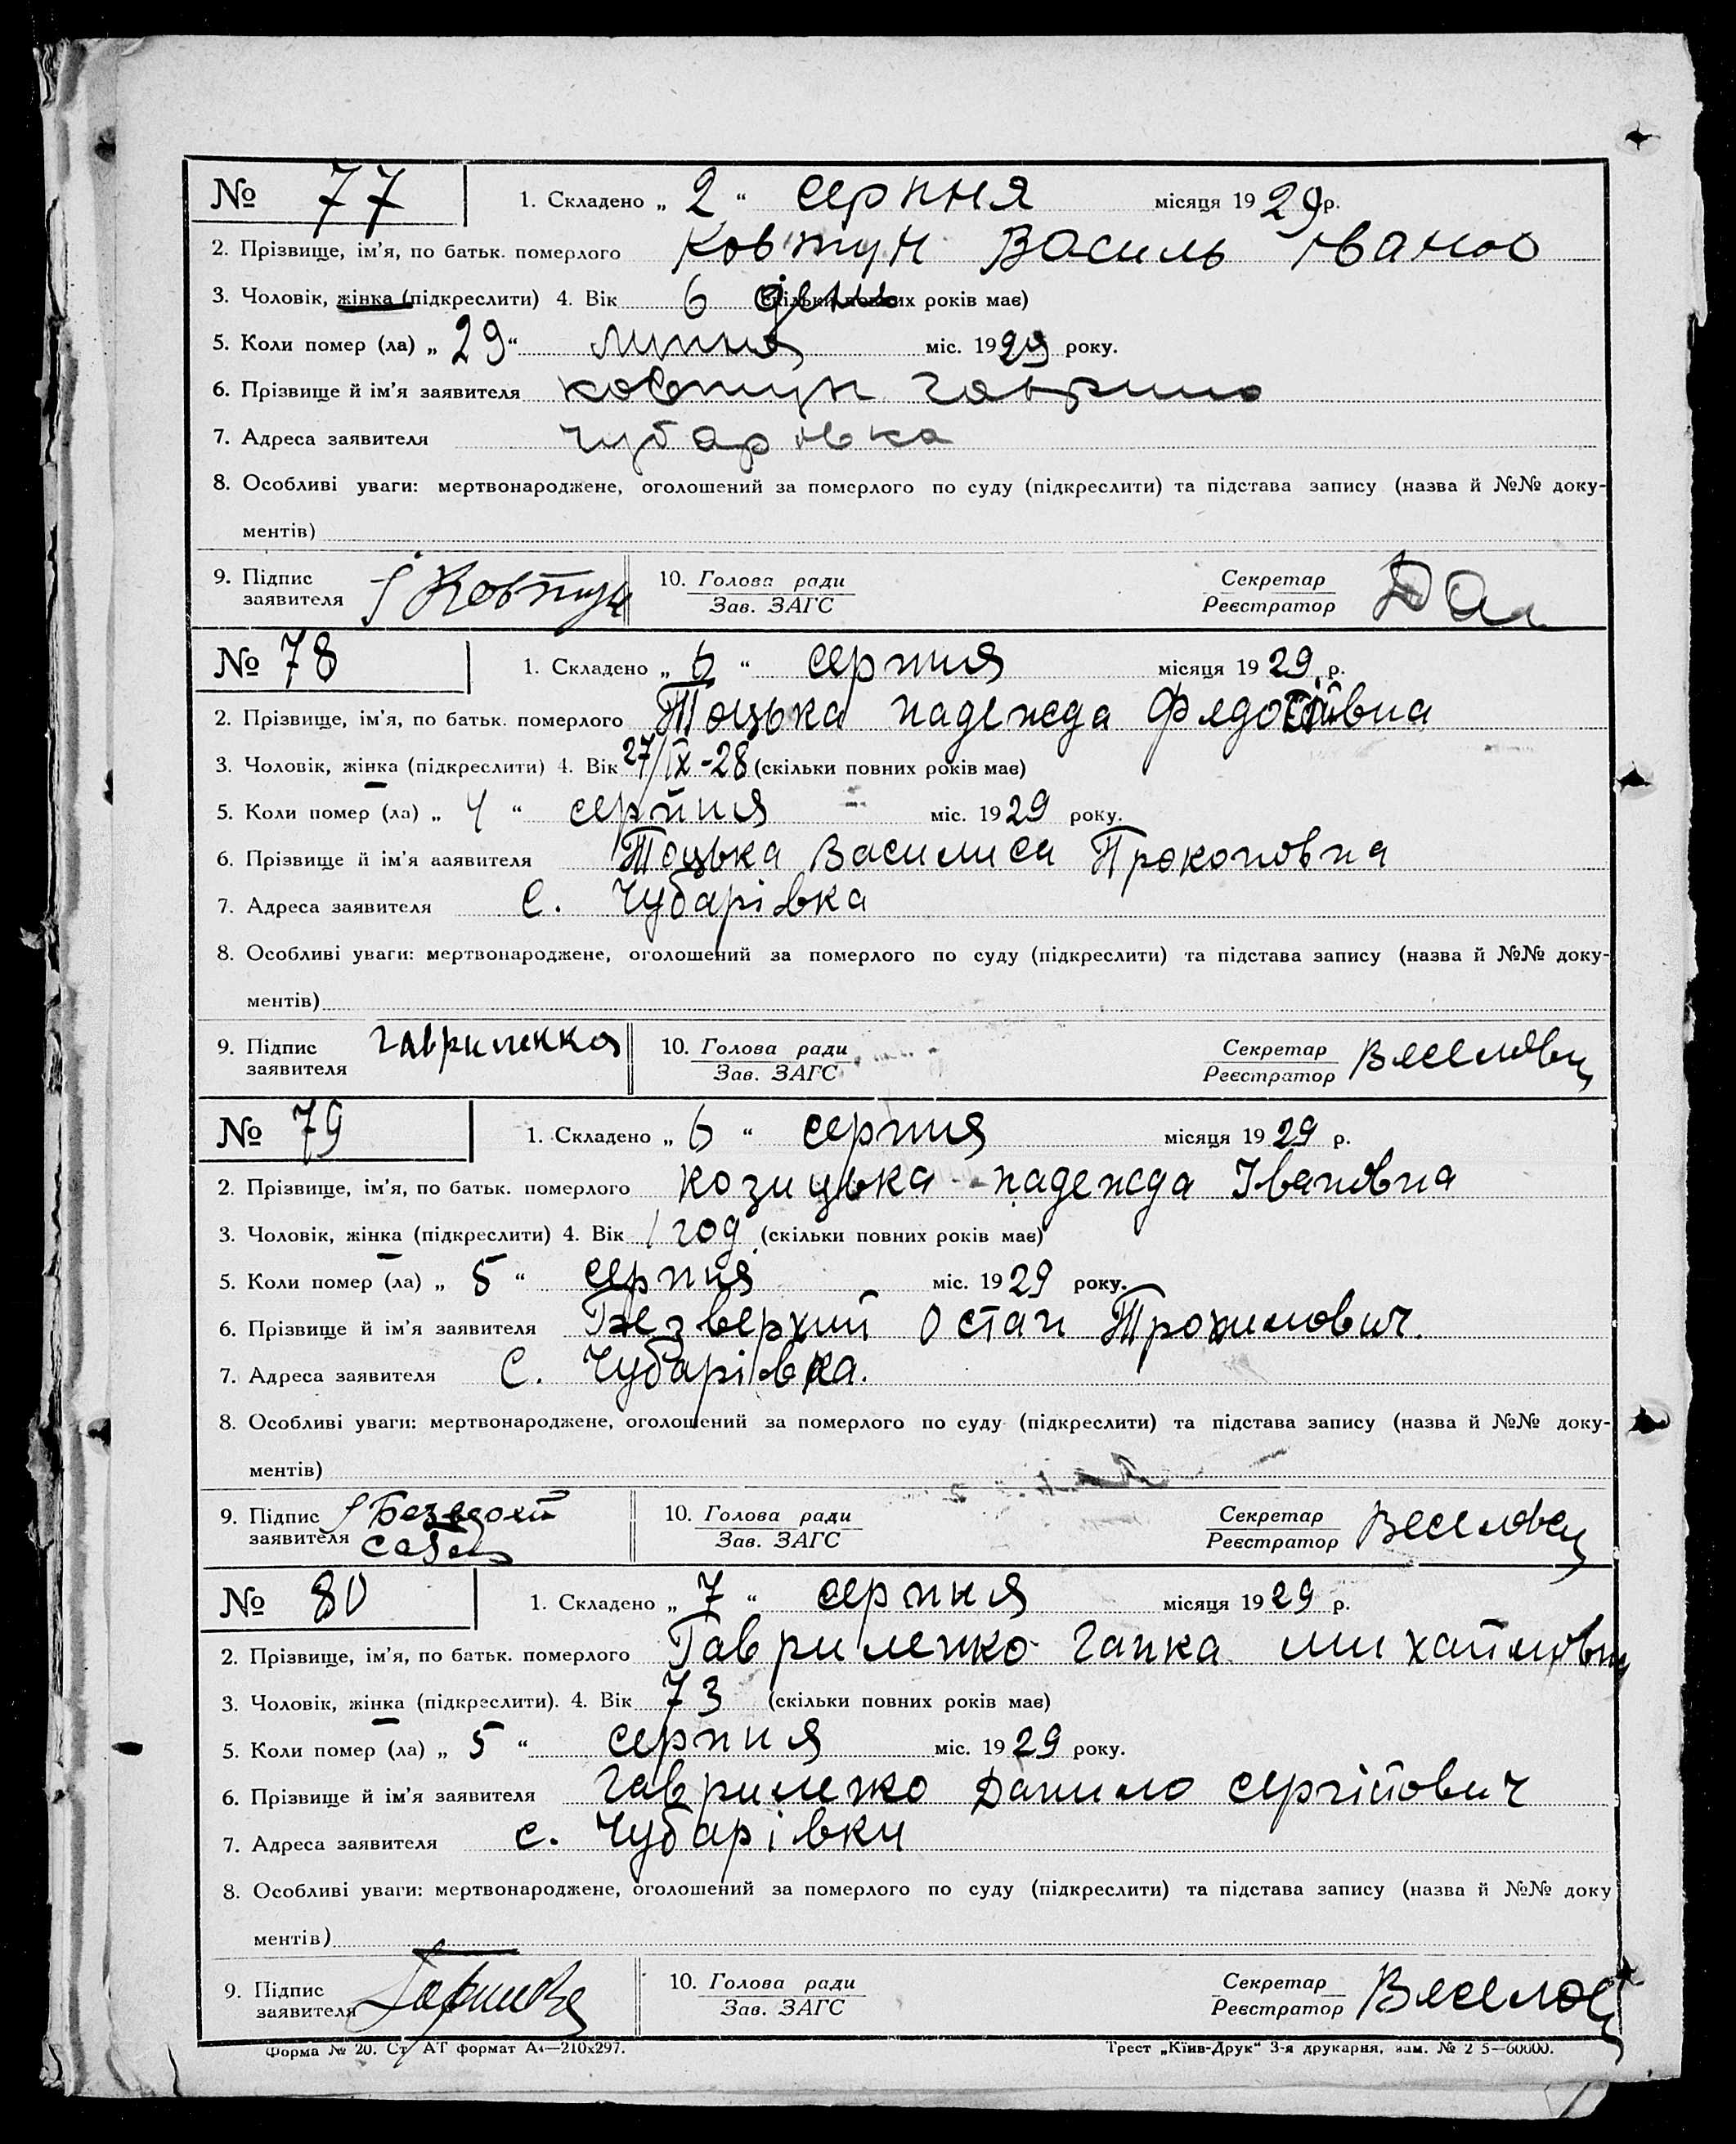 № 77 1. Складено „ 2 “ серпня місяця 1929 р.
2. Прізвище, ім’я, по батьк. померлого Ковтун Василь Іванов
3. Чоловік, жінка (підкреслити) 4. Вік 6 день (скільки повних років має)
5. Коли помер (ла) „ 29 “ липня міс. 1929 року.
6. Прізвище й ім’я заявителя Ковтун Гаврило
7. Адреса заявителя Чубарівка
8. Особливі уваги: мертвонароджене, оголошений за померлого по суду (підкреслити) та підстава запису (назва й №№ доку-
ментів)
9. Підпис заявителя Ковтун 10. Голова ради Секретар
Зав. ЗАГС Реєстратор
№ 78 1. Складено „ 6 “ серпня місяця 1929 р.
2. Прізвище, ім’я, по батьк. померлого Тоцька Надежда Федосіївна
3. Чоловік, жінка (підкреслити) 4. Вік 27/IX-28 (скільки повних років має)
5. Коли помер (ла) „ 4 “ серпня міс. 1929 року.
6. Прізвище й ім’я заявителя Тоцька Василиса Прокоповна
7. Адреса заявителя С. Чубарівка
8. Особливі уваги: мертвонароджене, оголошений за померлого по суду (підкреслити) та підстава запису (назва й №№ доку-
ментів)
9. Підпис заявителя 10. Голова ради Секретар
Зав. ЗАГС Реєстратор
№ 79 1. Складено „ 6 “ серпня місяця 1929 р.
2. Прізвище, ім’я, по батьк. померлого Козицька Надежда Івановна
3. Чоловік, жінка (підкреслити) 4. Вік 1 год (скільки повних років має)
5. Коли помер (ла) „ 5 “ серпня міс. 1929 року.
6. Прізвище й ім’я заявителя Безверхий Остап Трохимович.
7. Адреса заявителя С. Чубарівка.
8. Особливі уваги: мертвонароджене, оголошений за померлого по суду (підкреслити) та підстава запису (назва й №№ доку-
ментів)
9. Підпис заявителя 10. Голова ради Секретар
Зав. ЗАГС Реєстратор
№ 80 1. Складено „ 7 “ серпня місяця 1929 р.
2. Прізвище, ім’я, по батьк. померлого Гавриленко Гапка Михайловна
3. Чоловік, жінка (підкреслити). 4. Вік 73 (скільки повних років має)
5. Коли помер (ла) „ 5 “ серпня міс. 1929 року.
6. Прізвище й ім’я заявителя Гавриленко Данило Сергійович
7. Адреса заявителя с. Чубарівки
8. Особливі уваги: мертвонароджене, оголошений за померлого по суду (підкреслити) та підстава запису (назва й №№ доку
ментів)
9. Підпис заявителя 10. Голова ради Секретар
Зав. ЗАГС Реєстратор
Форма № 20. Ст. АТ формат А4—210х297. Трест „Київ-Друк“ 3-я друкарня, зам. №